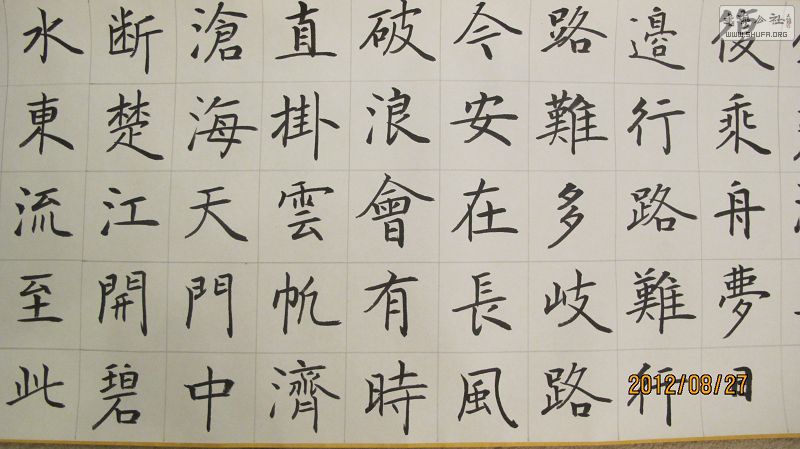 復乘舟夢日
邊行路難行
路難多岐路
今安在長風
破浪會有時
直掛雲帆濟
滄海天門中
断楚江開碧
水東流至此
WWW.SHUFA.ORG
2012/08/27